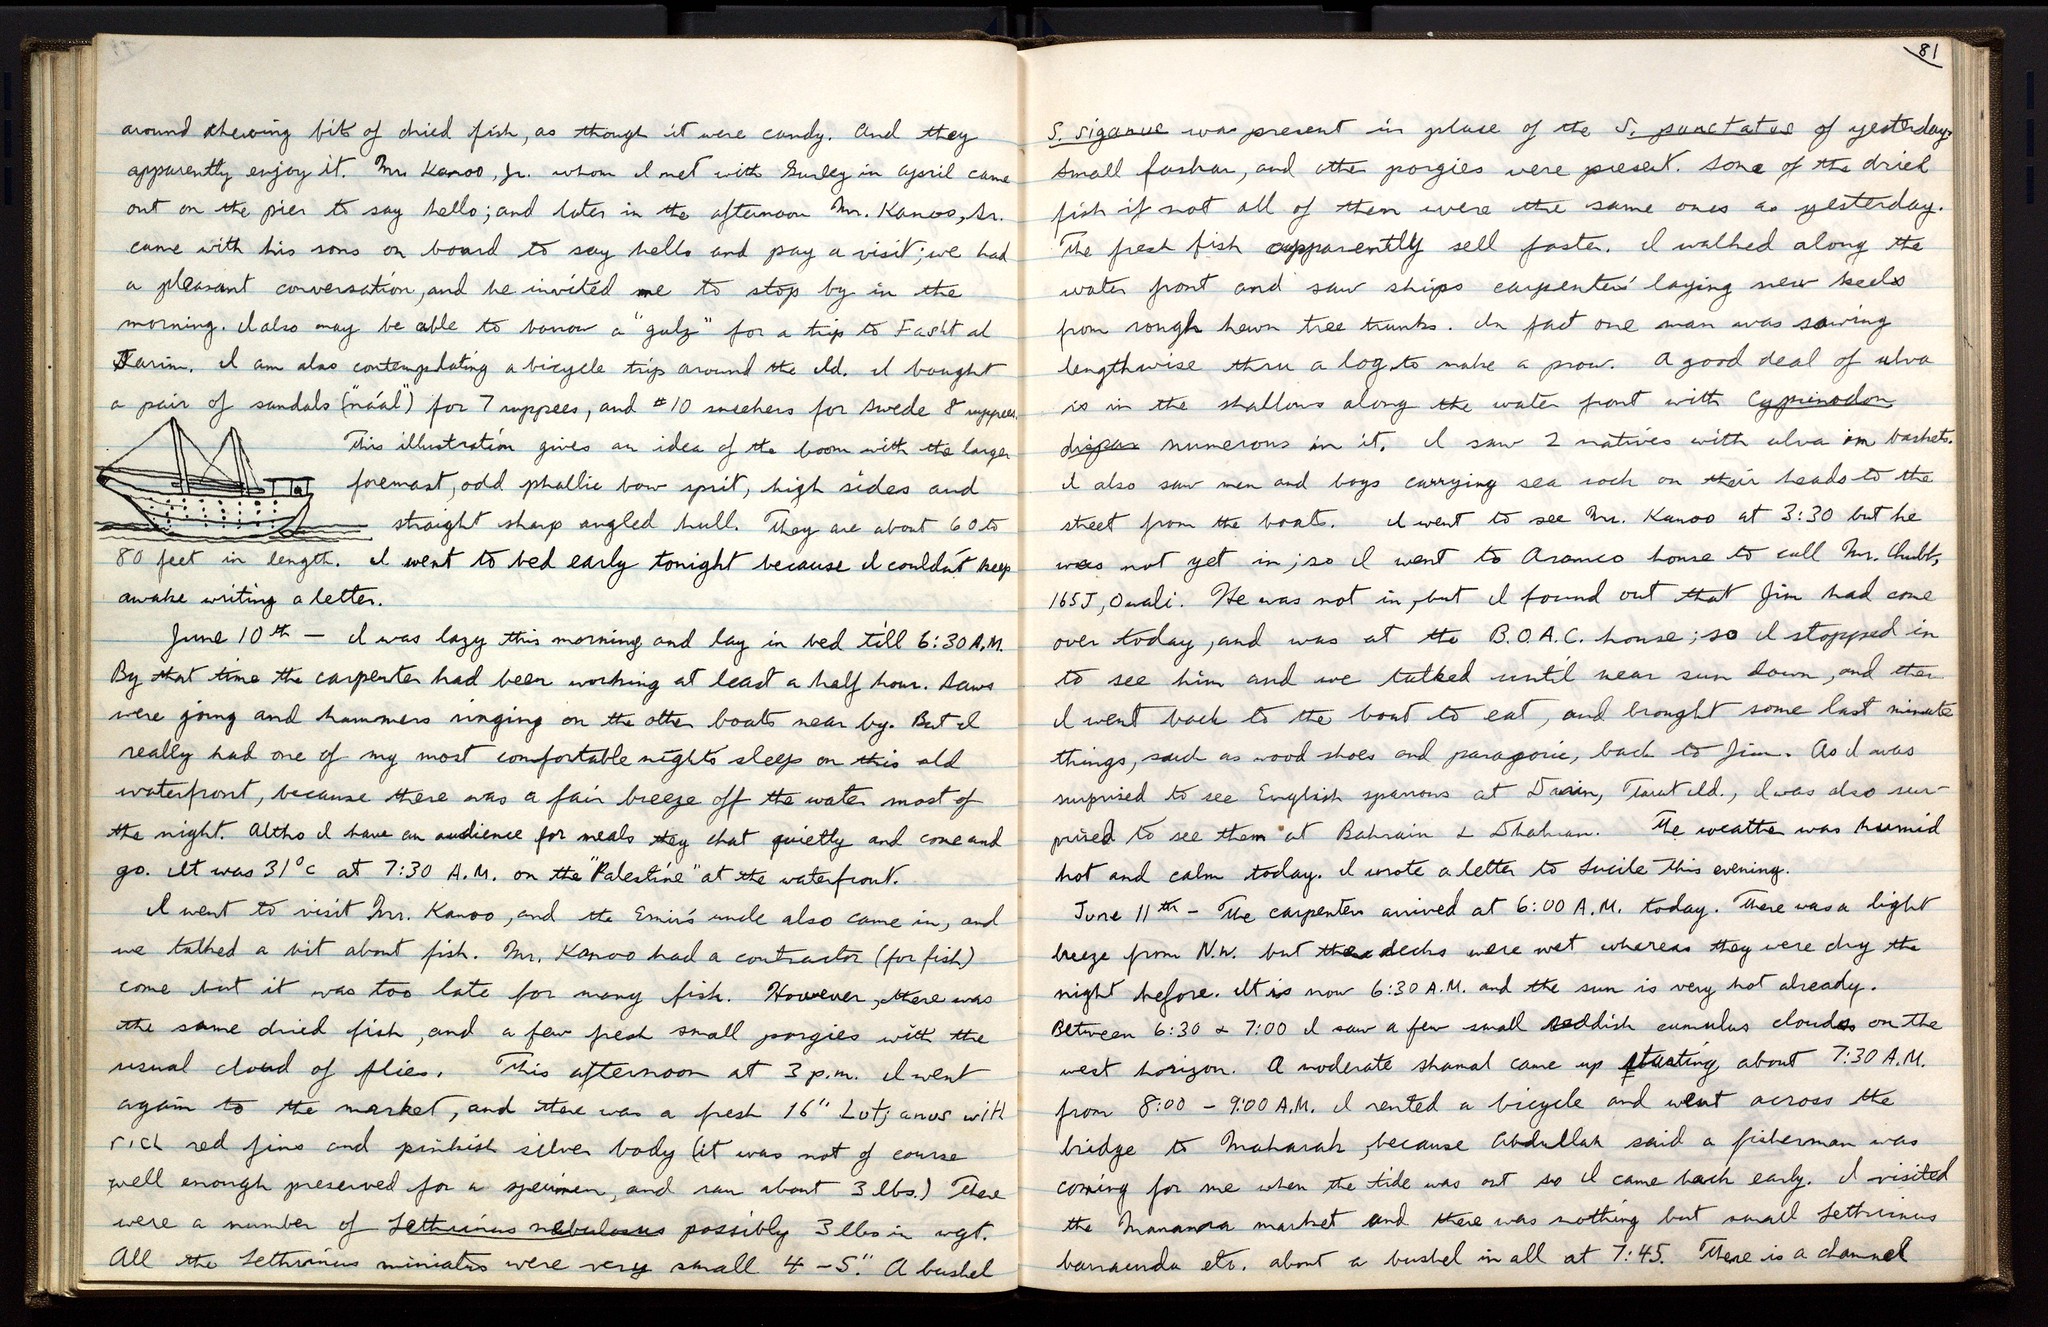 around chewing bits of dried fish, as though it were candy. And they
apparently enjoy it. Mr. Kanoo, Jr. whom I met with Gurley in April came
out on the pier to say hello; and later in the afternoon Mr. Kanoo, Sr.
came with his sons on board to say hello and pay a visit; we had
a pleasant conversation, and he invited me to stop by in the
morning. I also may be able to borrow a "galz" for a trip to Fasht al
Jarim. I am also contemplating a bicycle trip around the Ild. I bought
a pair of sandals ("náal") for 7 ruppees, and #10 sneekers for Swede 8 ruppees.
This illustration gives an idea of the boom with the larger
foremast, odd phallic bow sprit, high sides and
straight sharp angled hull. They are about 60 to
80 feet in length. I went to bed early tonight because I couldn't keep
awake writing a letter.
June 10th — I was lazy this morning and lay in bed till 6:30 A.M.
By that time the carpenter had been working at least a half hour. Saws
were going and hammers ringing on the other boats near by. But I
really had one of my most comfortable nights sleep on this old
waterfront, because there was a fair breeze off the water most of
the night. Altho I have an audience for meals they chat quietly and come and
go. It was 31°C at 7:30 A.M. on the "Palestine" at the waterfront.
I went to visit Mr. Kanoo, and the Emir's uncle also came in, and
we talked a bit about fish. Mr. Kanoo had a contractor (for fish)
come but it was too late for many fish. However, there was
the same dried fish, and a few fresh small porgies with the
usual cloud of flies. This afternoon at 3 p.m. I went
again to the market, and there was a fresh 16" Lutjanus with
rich red fins and pinkish silver body (it was not of course
well enough preserved for a specimen, and ran about 3 lbs.) There
were a number of Lethrinus nebulosus possibly 3 lbs in wgt.
All the Lethrinus miniatus were very small 4 - 5". A bushel
81
S. siganus was present in place of the S. punctatus of yesterday.
Small faskar, and other porgies were present. Some of the dried
fish if not all of them were the same ones as yesterday.
The fresh fish apparently sell faster. I walked along the
water front and saw ships carpenters laying new keels
from rough hewn tree trunks. In fact one man was sawing
lengthwise thru a log to make a prow. A good deal of ulva
is in the shallows along the water front with Cyprinodon
dispar numerous in it. I saw 2 natives with ulva in baskets.
I also saw men and boys carrying sea rock on their heads to the
street from the boats. I went to see Mr. Kanoo at 3:30 but he
was not yet in; so I went to Aramco house to call Mr. Chubb,
165J, Owali. He was not in, but I found out that Jim had come
over today, and was at the B.O.A.C. house; so I stopped in
to see him and we talked until near sun down, and then
I went back to the boat to eat, and brought some last minute
things, such as wood shoes and paragoric, back to Jim. As I was
surprised to see English sparrows at Darin, Tarut Ild., I was also sur-
prised to see them at Bahrain & Dhahran. The weather was humid
hot and calm today. I wrote a letter to Lucile this evening.
June 11th - The carpenters arrived at 6:00 A.M. today. There was a light
breeze from N.W. but the decks were wet whereas they were dry the
night before. It is now 6:30 A.M. and the sun is very hot already.
Between 6:30 & 7:00 I saw a few small reddish cumulus clouds on the
west horizon. A moderate shamal came up starting about 7:30 A.M.
from 8:00 - 9:00 A.M. I rented a bicycle and went across the
bridge to Muharak, because Abdullah said a fisherman was
coming for me when the tide was out so I came back early. I visited
the Manama market and there was nothing but small Lethrinus
barracuda etc. about a bushel in all at 7:45. There is a channel